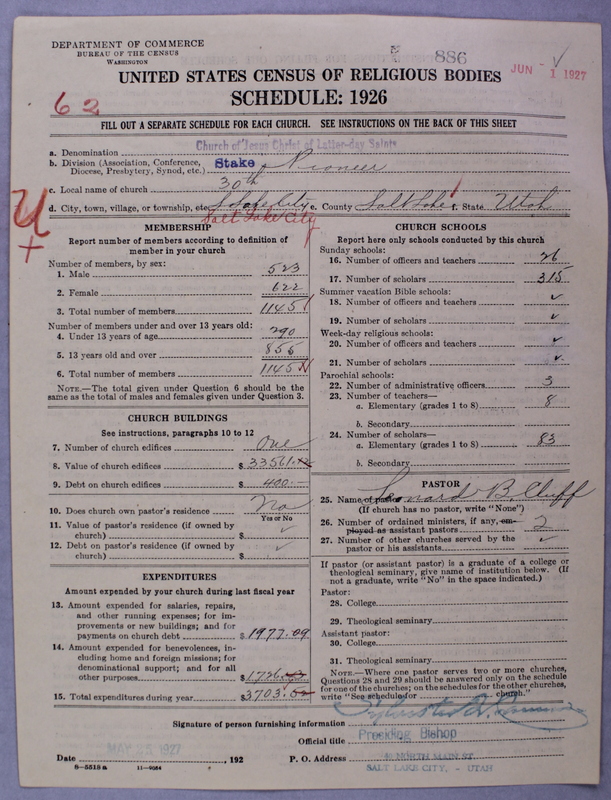 DEPARTMENT OF COMMERCE
BUREAU OF THE CENSUS
WASHINGTON
886
JUN - 1 1927
UNITED STATES CENSUS OF RELIGIOUS BODIES
62
SCHEDULE: 1926
FILL OUT A SEPARATE SCHEDULE FOR EACH CHURCH. SEE INSTRUCTIONS ON THE BACK OF THIS SHEET
a. Denomination Church of Jesus Christ of Latter-day Saints
b. Division (Association, Conference, Diocese, Presbytery, Synod, etc.) Stake Pioneer
c. Local name of church 30th
d. City, town, village, or township, etc. S Lake City e. County Salt Lake f. State Utah
Salt Lake City
MEMBERSHIP
Report number of members according to definition of
member in your church
Number of members, by sex:
1. Male 523
2. Female 622
3. Total number of members 1145
Number of members under and over 13 years old:
4. Under 13 years of age 290
5. 13 years old and over 855
6. Total number of members 1145
NOTE.—The total given under Question 6 should be the
same as the total of males and females given under Question 3.
CHURCH BUILDINGS
See instructions, paragraphs 10 to 12
7. Number of church edifices One
8. Value of church edifices $ 33561
9. Debt on church edifices $ 400
10. Does church own pastor's residence No
Yes or No
11. Value of pastor's residence (if owned by
church) $ ✓
12. Debt on pastor's residence (if owned by
church) $ ✓
EXPENDITURES
Amount expended by your church during last fiscal year
13. Amount expended for salaries, repairs,
and other running expenses; for im-
provements or new buildings; and for
payments on church debt $ 1977.09
14. Amount expended for benevolences, in-
cluding home and foreign missions; for
denominational support; and for all
other purposes $ 1726
15. Total expenditures during year $ 3703
CHURCH SCHOOLS
Report here only schools conducted by this church
Sunday schools:
16. Number of officers and teachers 26
17. Number of scholars 315
Summer vacation Bible schools:
18. Number of officers and teachers ✓
19. Number of scholars ✓
Week-day religious schools:
20. Number of officers and teachers ✓
21. Number of scholars ✓
Parochial schools:
22. Number of administrative officers 3
23. Number of teachers—
a. Elementary (grades 1 to 8) 8
b. Secondary
24. Number of scholars—
a. Elementary (grades 1 to 8) 83
b. Secondary
PASTOR
25. Name of pastor Leonard B. Cluff
(If church has no pastor, write "None")
26. Number of ordained ministers, if any, em-
ployed as assistant pastors 2
27. Number of other churches served by the
pastor or his assistants ✓
If pastor (or assistant pastor) is a graduate of a college or
theological seminary, give name of institution below. (If
not a graduate, write "No" in the space indicated.)
Pastor:
28. College
29. Theological seminary
Assistant pastor:
30. College
31. Theological seminary
NOTE.—Where one pastor serves two or more churches,
Questions 28 and 29 should be answered only on the schedule
for one of the churches; on the schedules for the other churches,
write "See schedule for church."
Signature of person furnishing information Sylvester Q. Cannon
Official title Presiding Bishop
Date MAY 25 1927, 192 P. O. Address 40 NORTH MAIN ST.
SALT LAKE CITY, - UTAH
8-5518a 11-9084